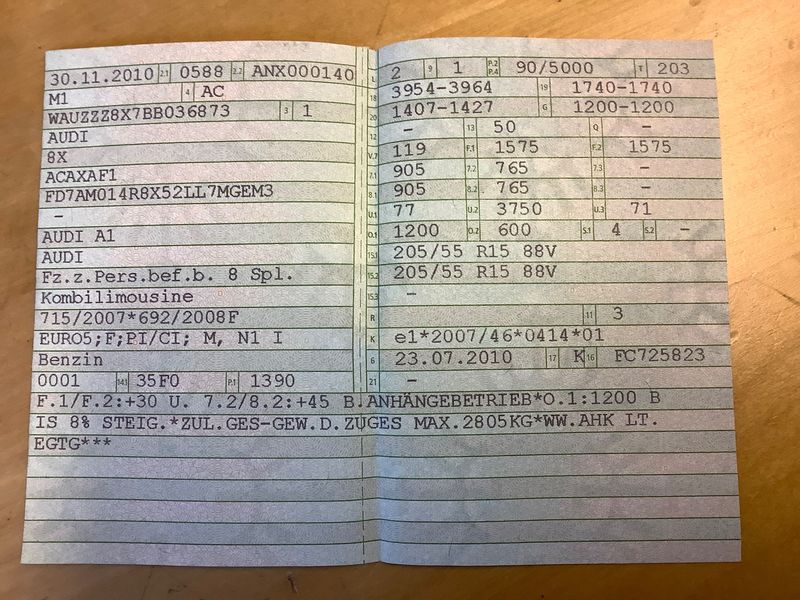 30.11.2010 2.1 0588 2.2 ANX000140 L 2 9 1 P.2 P.4 90/5000 T 203
M1 4 AC 18 3954-3964 19 1740-1740
WAUZZZ8X7BB036873 3 1 20 1407-1427 G 1200-1200
AUDI 12 – 13 50 Q –
8X V.7 119 F.1 1575 F.2 1575
ACAXAF1 7.1 905 7.2 765 7.3 –
FD7AM014R8X52LL7MGEM3 8.1 905 8.2 765 8.3 –
– U.1 77 U.2 3750 U.3 71
AUDI A1 O.1 1200 O.2 600 S.1 4 S.2 –
AUDI 15.1 205/55 R15 88V
Fz.z.Pers.bef.b. 8 Spl. 15.2 205/55 R15 88V
Kombilimousine 15.3 –
715/2007*692/2008F R 11 3
EURO5;F;PI/CI; M, N1 I K e1*2007/46*0414*01
Benzin 6 23.07.2010 17 K 16 FC725823
0001 14.1 35F0 P.1 1390 21 –
F.1/F.2:+30 U. 7.2/8.2:+45 B.ANHÄNGEBETRIEB*O.1:1200 B
IS 8% STEIG.*ZUL.GES-GEW.D.ZUGES MAX.2805KG*WW.AHK LT.
EGTG***